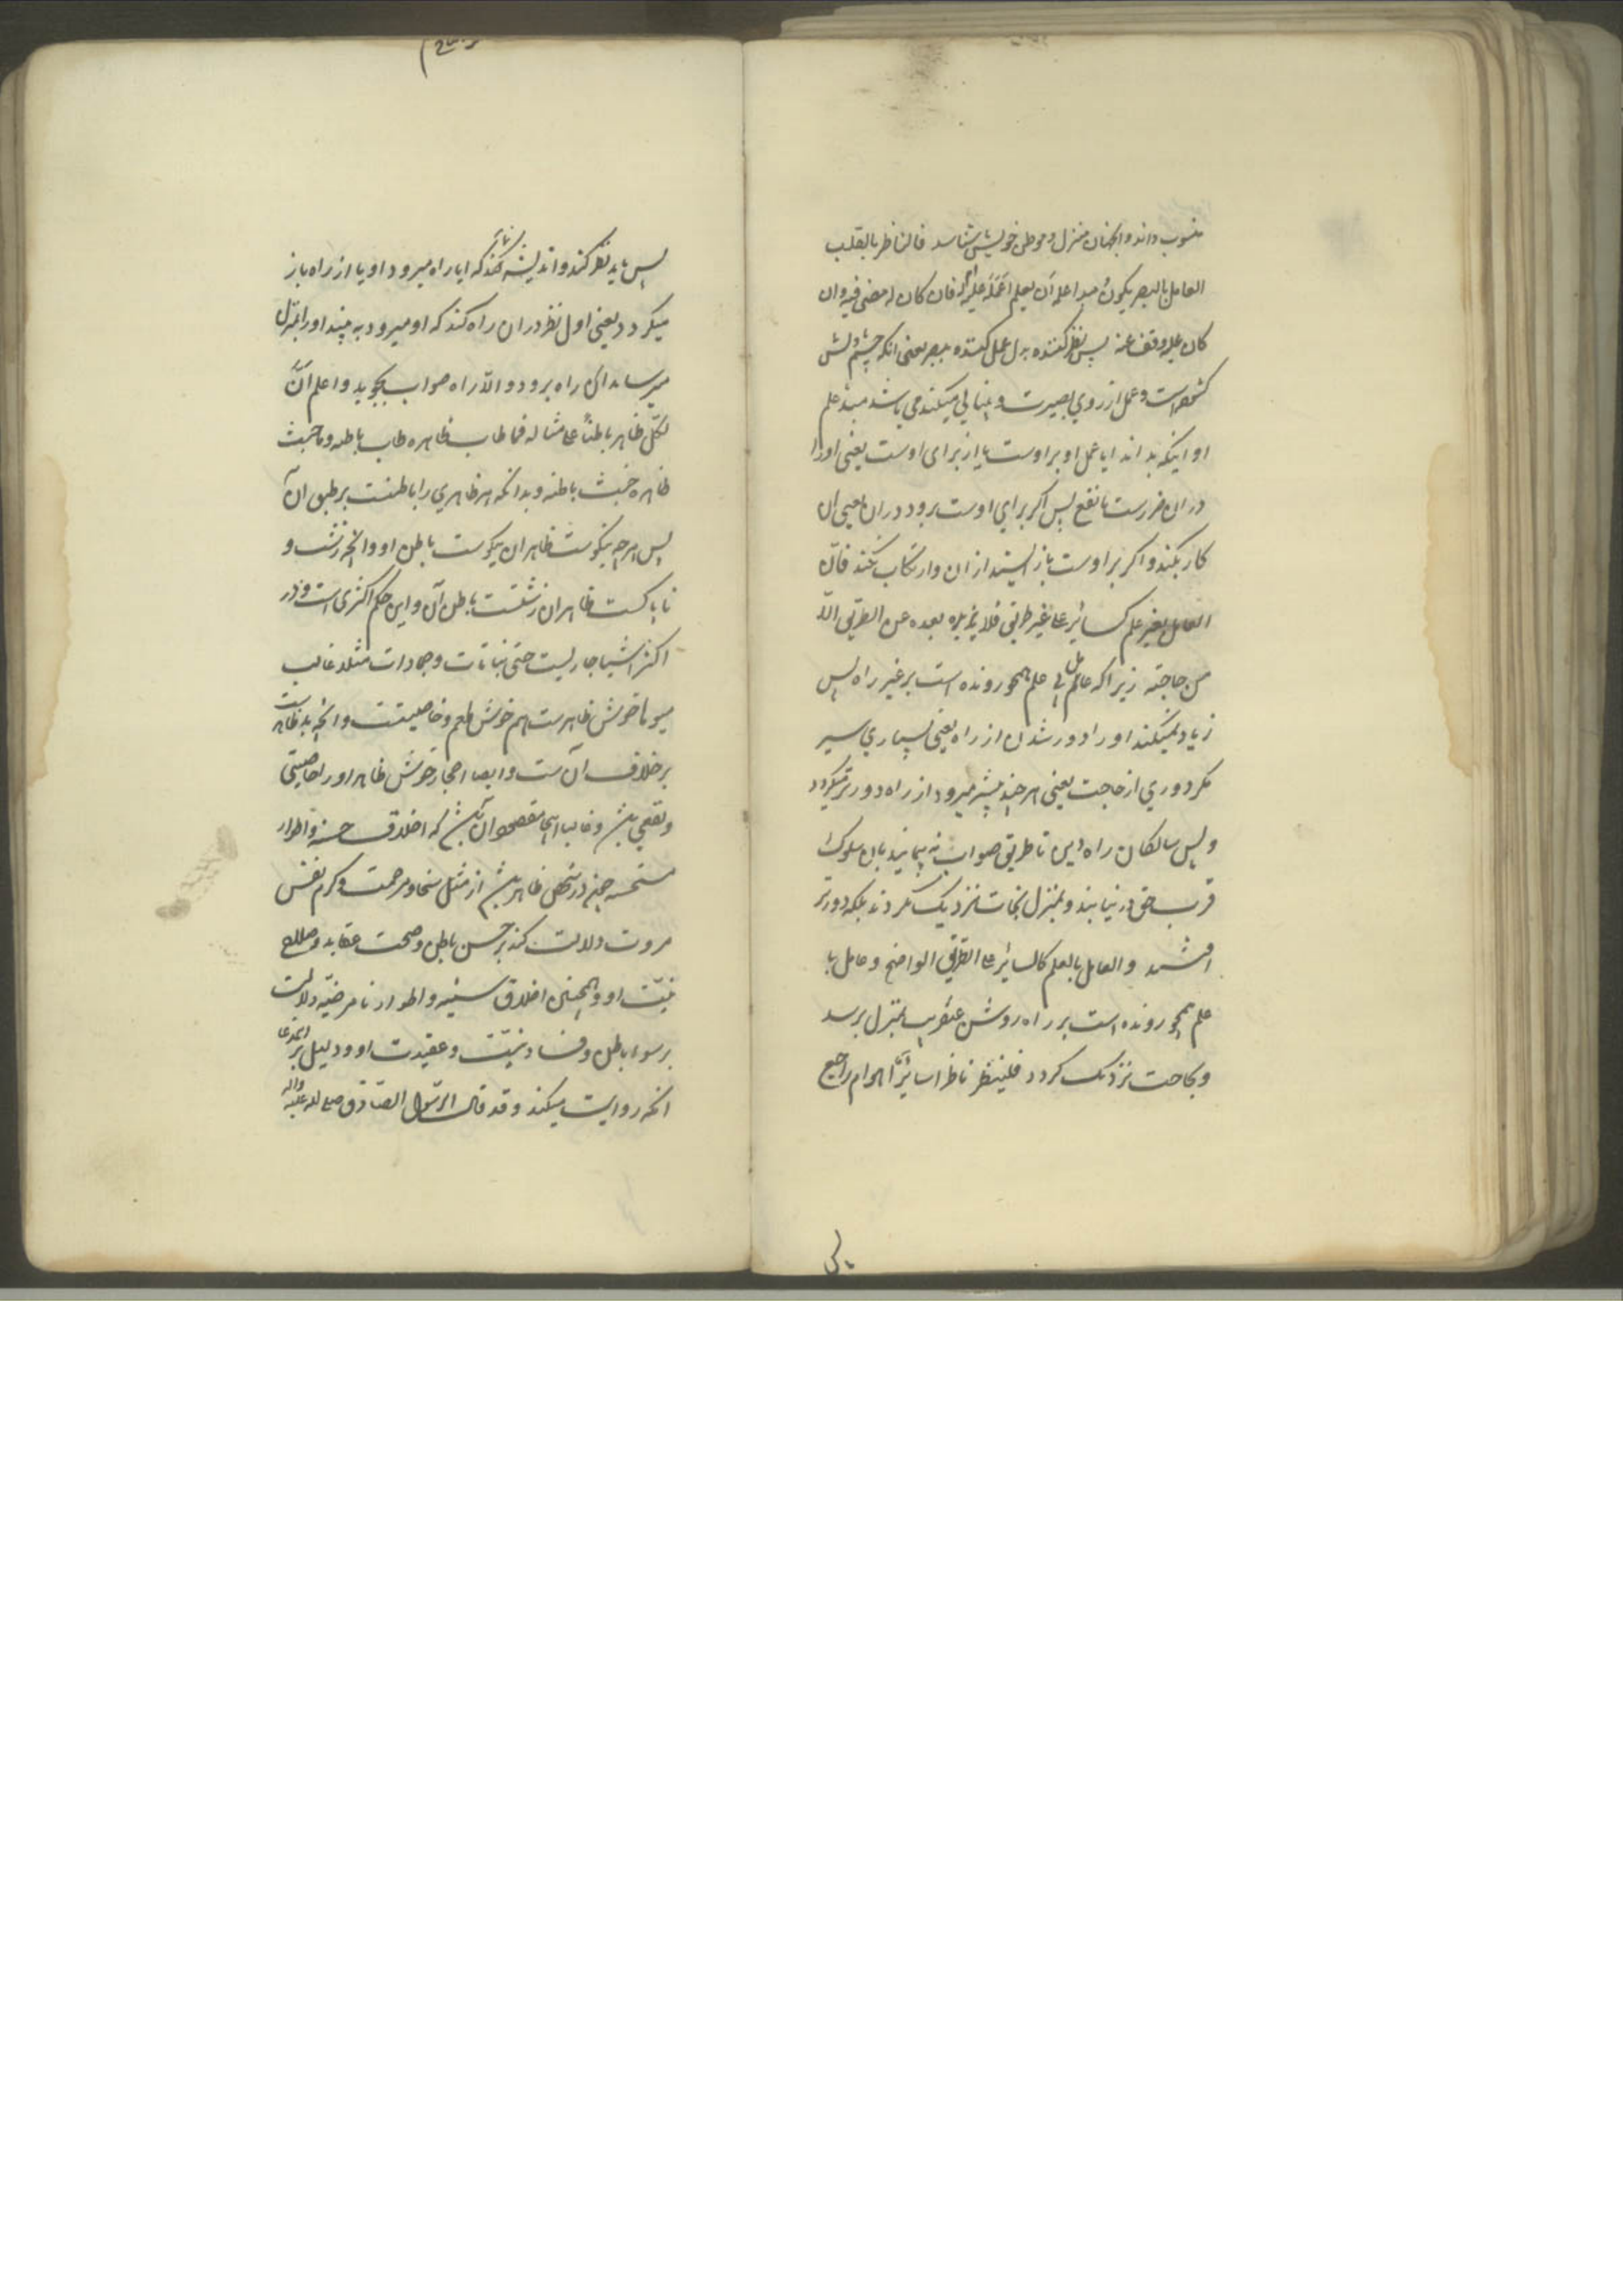 منسوب داند و الجنان منزل و موطن خویش شناسد فالناظر بالقلب
العامل بالبصر یکون مبدا عمله ان یعلم اعمله علیه ام له فان کان له مضی فیه وان
کان علیه وقف عنه پس نظر کننده بدل عمل کننده ببصر یعنی انکه چشم دلش
کشوده است و عمل از روی بصیرت و بینائی میکند می باشد مبدء علم
او اینکه بداند ایا عمل او بر اوست یا از برای اوست یعنی اورا
در ان ضررست یا نفع پس اکر برای اوست برود در ان یعنی ان
کار بکند و اکر بر اوست باز ایستد از ان و ارتکاب نکند فانّ
العامل بغیر علم کسائر علی غیر طریق فلا یزیده بعده عن الطریق الّا
من حاجته زیرا که عامل بی علم همچو رونده است بر غیر راه پس
زیاد نمیکند اورا دور شدن از راه یعنی بسیاری سیر
مکر دوری از حاجت یعنی هر چند بیشتر میرود از راه دورتر میکردد
و پس سالکان راه دین تا طریق صواب نه پیمایند بان سلوک
قرب حق در نیابند و بمنزل نجات نزدیک نکردند بلکه دورتر
افتند و العامل بالعلم کالسائر علی الطریق الواضح و عامل با
علم همچو رونده است بر راه روشن عنقریب بمنزل برسد
و بحاجت نزدیک کردد فلینظر ناظر اسائر هو ام راجع
پس باید نظر کند و اندیشه کند که ایا راه میرود او یا از راه باز
میکردد یعنی اول نظر در ان راه کند که او میرود به بیند اورا بمنزل
میرساند ان راه برود و الّا راه صواب بجوید و اعلم انّ
لکلّ ظاهر باطناً علی مثاله فما طاب ظاهره طاب باطنه و ما خبث
ظاهره خبث باطنه و بدانکه هر ظاهری را باطنست بر طبق ان
پس هر چه نیکوست ظاهر ان نیکوست باطن او و انچه زشت و
ناپاکست ظاهر ان زشتست باطن آن و این حکم اکثری است و در
اکثر اشیا جاریست حتی نباتات و جمادات مثلا غالب
میوها خوش ظاهرست هم خوش طعم و خاصیتست و انچه بد ظاهرست
بر خلاف آن ست و ایضا احجار خوش ظاهر اورا خاصیتی
و نفعی باشد و غالبا اینجا مقصود ان باشد که اخلاق حسنه و اطوار
مستحسنه چون در شخص ظاهر باشد از مثل سخا و مرحمت و کرم نفس
مروت دلالت کند بر حسن باطن و صحت عقاید و صلاح
نیّت او و همچنین اخلاق سیئه و اطوار نامرضیّه دلالت
بر سوء باطن و فساد نیّت و عقیدت او و دلیل بر این مدعا
انکه روایت میکند و قد قال الرّسول الصّادق صلی الله علیه واله